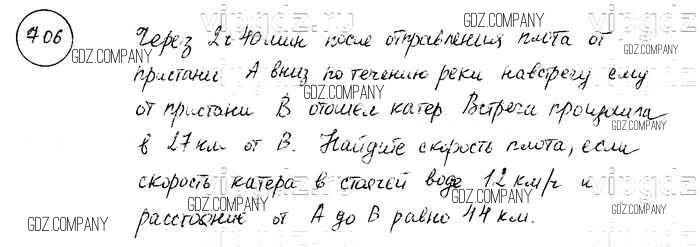 706
Через 2ч 40мин после отправления плота от
пристани А вниз по течению реки навстречу ему
от пристани В отошел катер Встреча произошла
в 27 км от В. Найдите скорость плота, если
скорость катера в стоячей воде 12 км/ч и
расстояние от А до В равно 44 км.
GDZ.COMPANY
GDZ.COMPANY
GDZ.COMPANY
GDZ.COMPANY
GDZ.COMPANY
GDZ.COMPANY
GDZ.COMPANY
GDZ.COMPANY